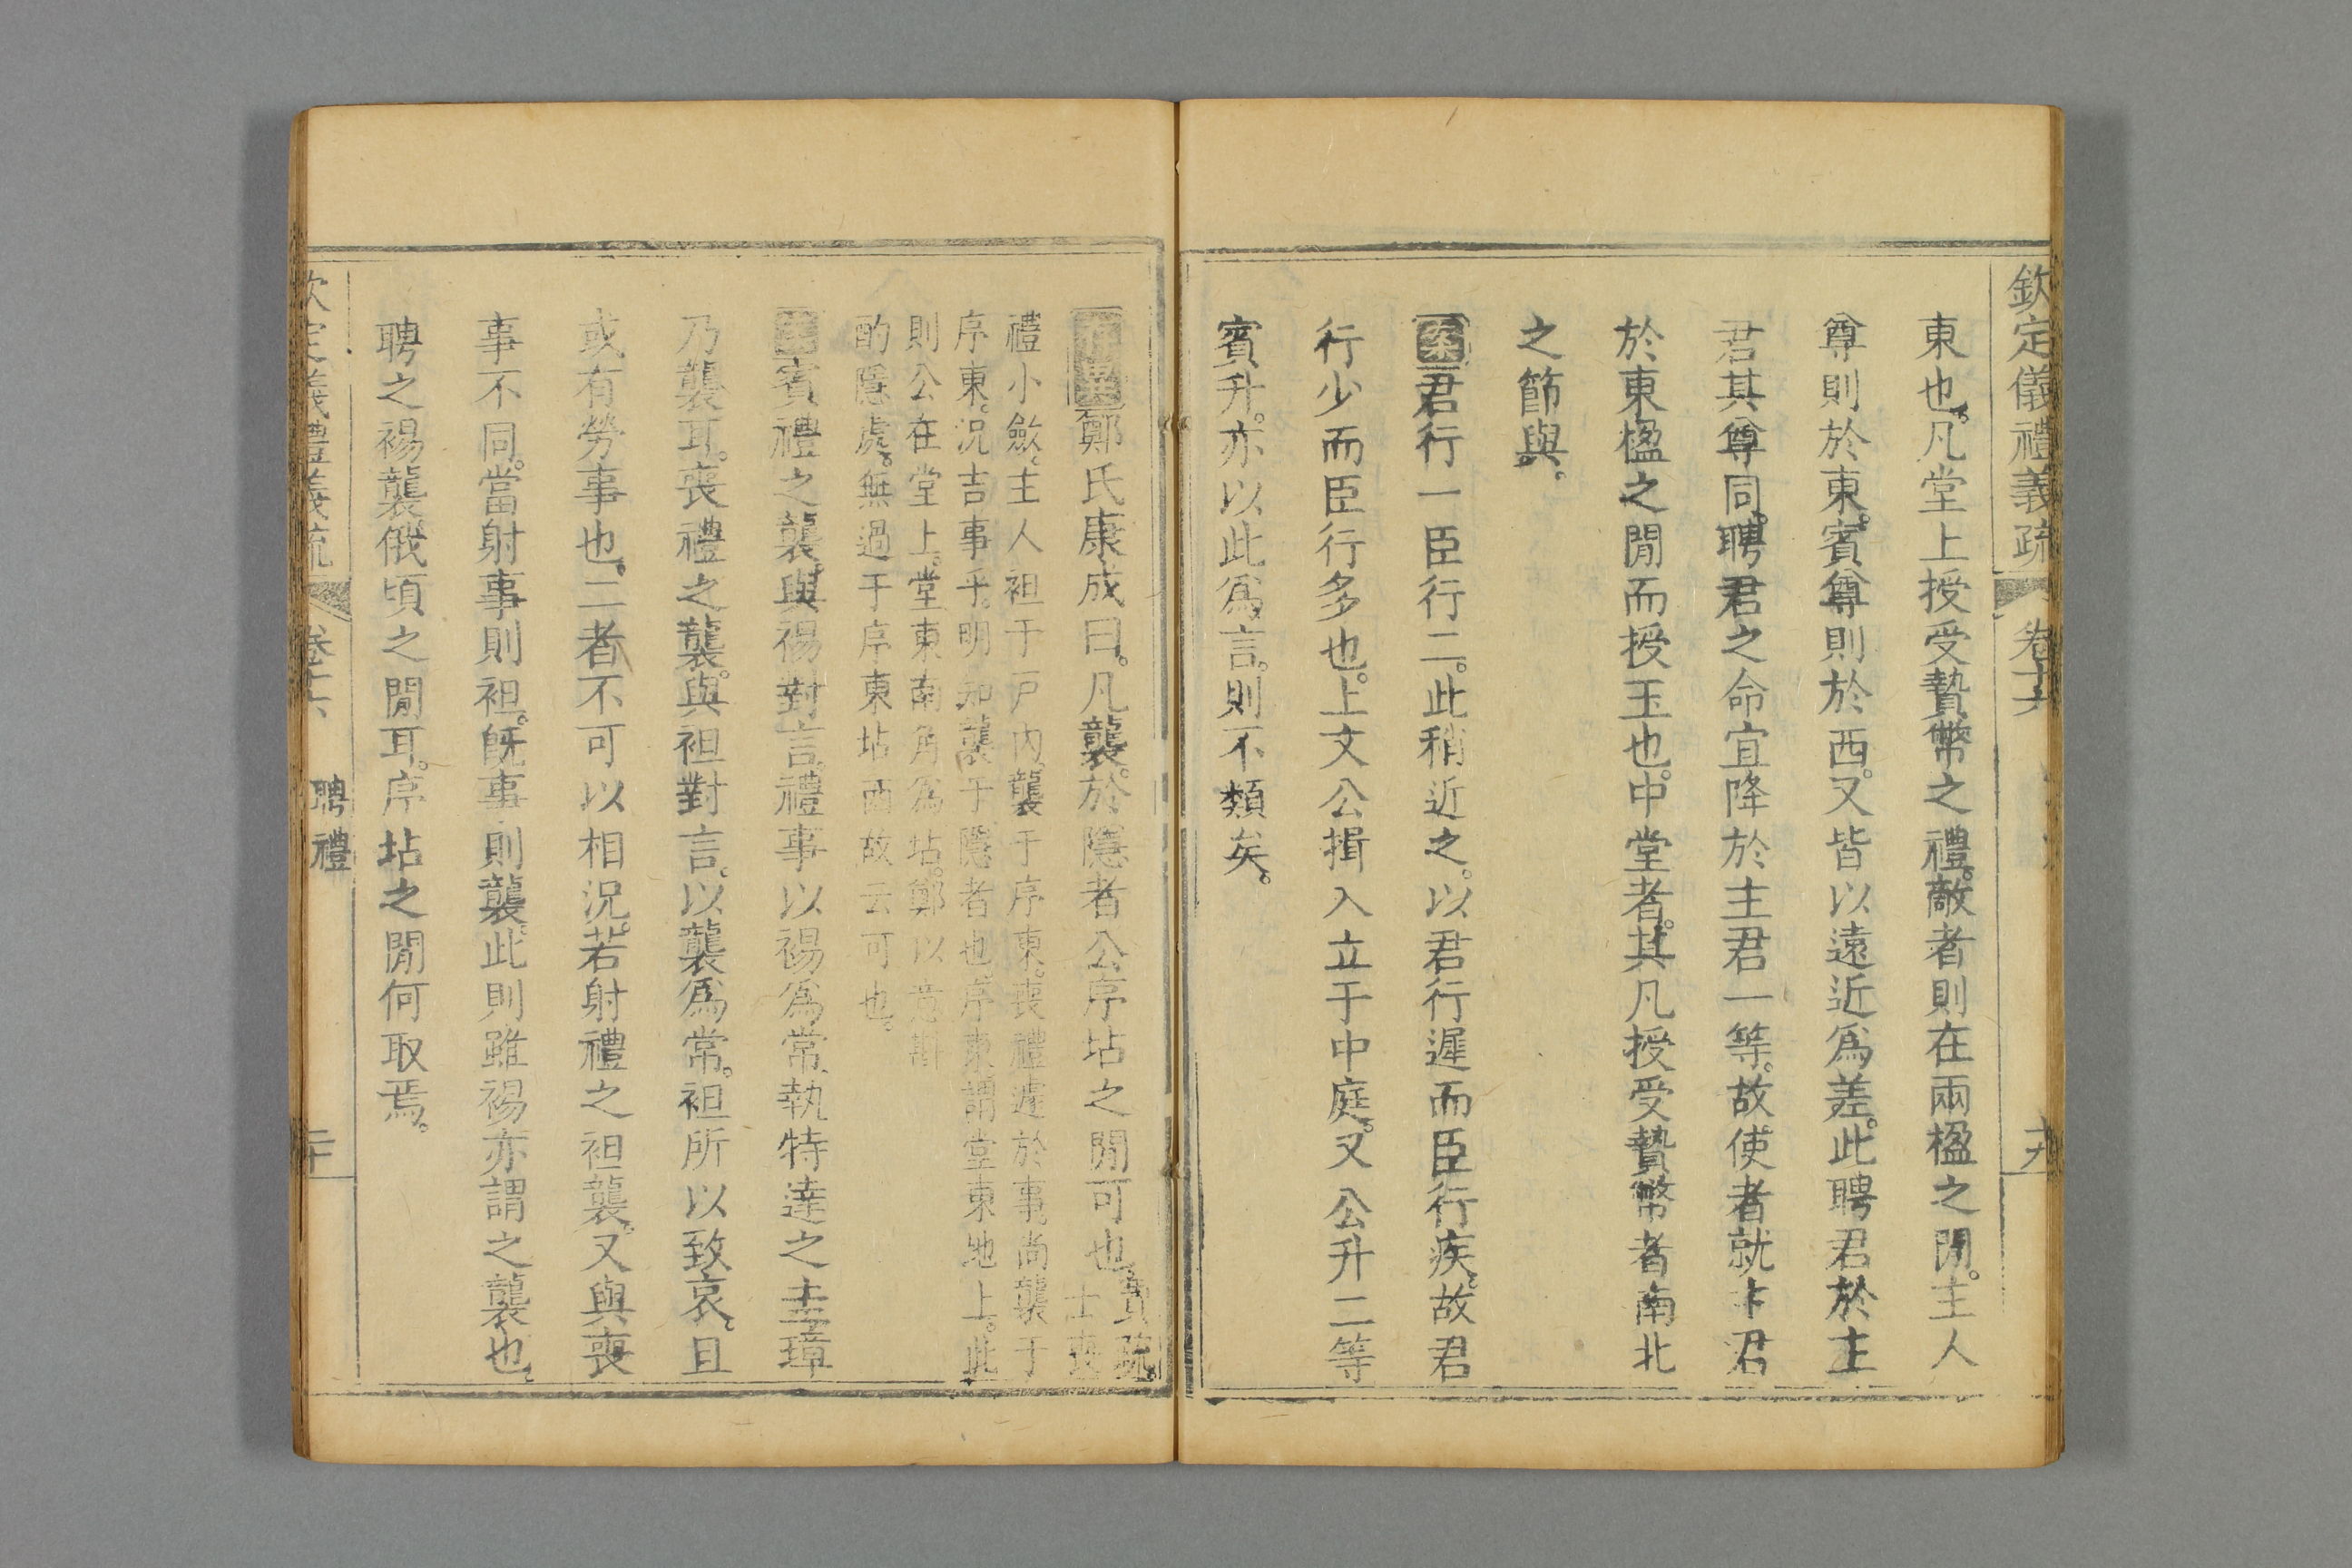 欽定儀禮義疏　卷十六　十九
東也。凡堂上授受贄幣之禮。敵者則在兩楹之閒。主人
尊則於東。賓尊則於西。又皆以遠近爲差。此聘君於主
君其尊同。聘君之命宜降於主君一等。故使者就主君
於東楹之閒而授玉也。中堂者。其凡授受贄幣者南北
之節與。
案君行一臣行二。此稍近之。以君行遲而臣行疾。故君
行少而臣行多也。上文公揖入立于中庭。又公升二等
賓升。亦以此爲言。則不類矣。
存異鄭氏康成曰。凡襲。於隱者公序坫之閒可也。賈疏。
士喪
禮小斂。主人袒于戸内。襲于序東。喪禮遽於事。尚襲于
序東。況吉事乎。明知襲于隱者也。序東謂堂東地上。此
則公在堂上。堂東南角爲坫。鄭以意斟
酌隱處。無過于序東坫西故云可也。
賓禮之襲。與裼對言。禮事以裼爲常。執特達之圭璋
乃襲耳。喪禮之襲。與袒對言。以襲爲常。袒所以致哀。且
或有勞事也。二者不可以相況。若射禮之袒襲。又與喪
事不同。當射事則袒。旣事則襲。此則雖裼亦謂之襲也。
聘之裼襲俄頃之閒耳。序坫之閒何取焉。
欽定儀禮義疏　卷十六　聘禮　二十